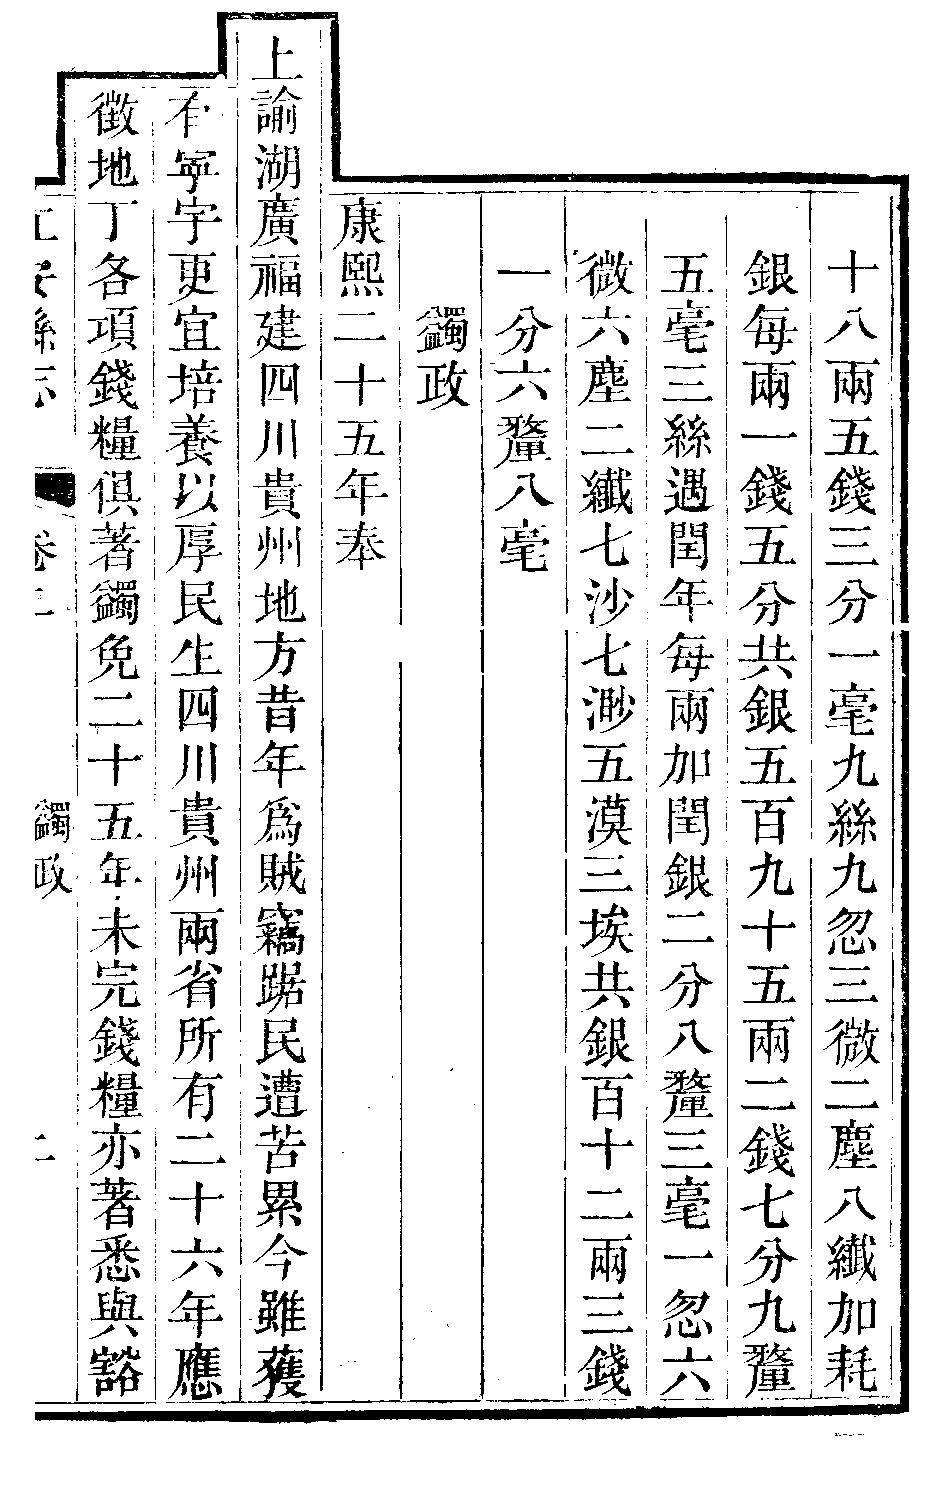 十八兩五錢三分一毫九絲九忽三微二塵八纖加耗
銀每兩一錢五分共銀五百九十五兩二錢七分九釐
五毫三絲遇閏年每兩加閏銀二分八釐三毫一忽六
微六塵二纖七沙七渺五漠三埃共銀百十二兩三錢
一分六釐八毫
蠲政
康熙二十五年奉
上諭湖廣福建四川貴州地方昔年爲賊竊踞民遭苦累今雖獲
有寧宇更宜培養以厚民生四川貴州兩省所有二十六年應
徵地丁各項錢糧俱著蠲免二十五年未完錢糧亦著悉與豁
蠲政